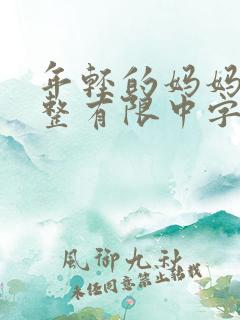 年轻的妈妈
整有限中字
風御九秋
未经同意禁止转载